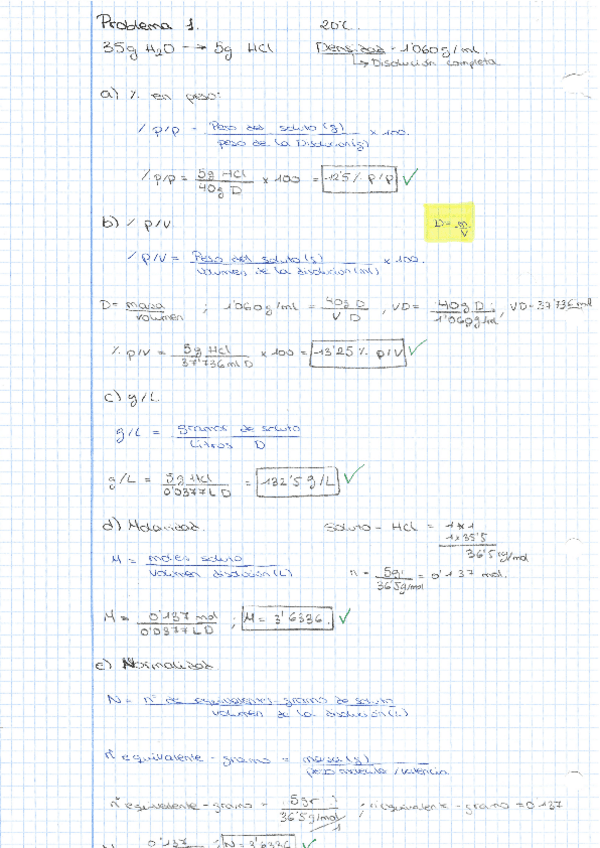 Problema 1. 20ºC.
35g H₂O → 5g HCl Densidad - 1'060g/ml.
↳ Disolución completa
a) % en peso:
% p/p = Peso del soluto (g) / peso de la Disolución(g) × 100.
% p/p = 5g HCl / 40g D × 100 = 12'5 % p/p ✓
b) % p/v D = m/V
% p/v = Peso del soluto (g) / volumen de la disolución (ml) × 100.
D = masa / volumen ; 1'060g/ml = 40g D / V D , VD = 40g D / 1'060g/ml , VD = 37'736 ml
% p/v = 5g HCl / 37'736 ml D × 100 = 13'25 % p/v ✓
c) g/L.
g/L = gramos de soluto / Litros D
g/L = 5g HCl / 0'0377 L D = 132'5 g/L ✓
d) Molaridad. Soluto - HCl = 1 x 1
1 x 35'5
36'5 g/mol
M = moles soluto / volumen disolución (L) n = 5gr / 36'5g/mol = 0'137 mol.
M = 0'137 mol / 0'0377 L D ; M = 3'6336. ✓
e) Normalidad
N = nº de equivalentes-gramo de soluto / volumen de la disolución (L)
nº equivalente - gramo = masa (g) / peso molecular / valencia
nº equivalente - gramo = 5gr / 36'5g/mol / 1 ; n equivalente - gramo = 0'137
N 0'137 ; N = 3'6336 ✓